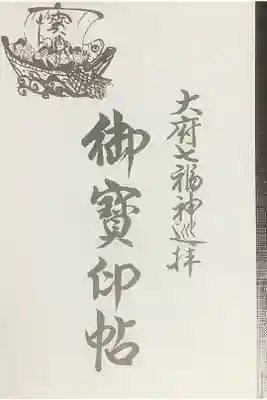 大府七福神巡拝
御寶印帖